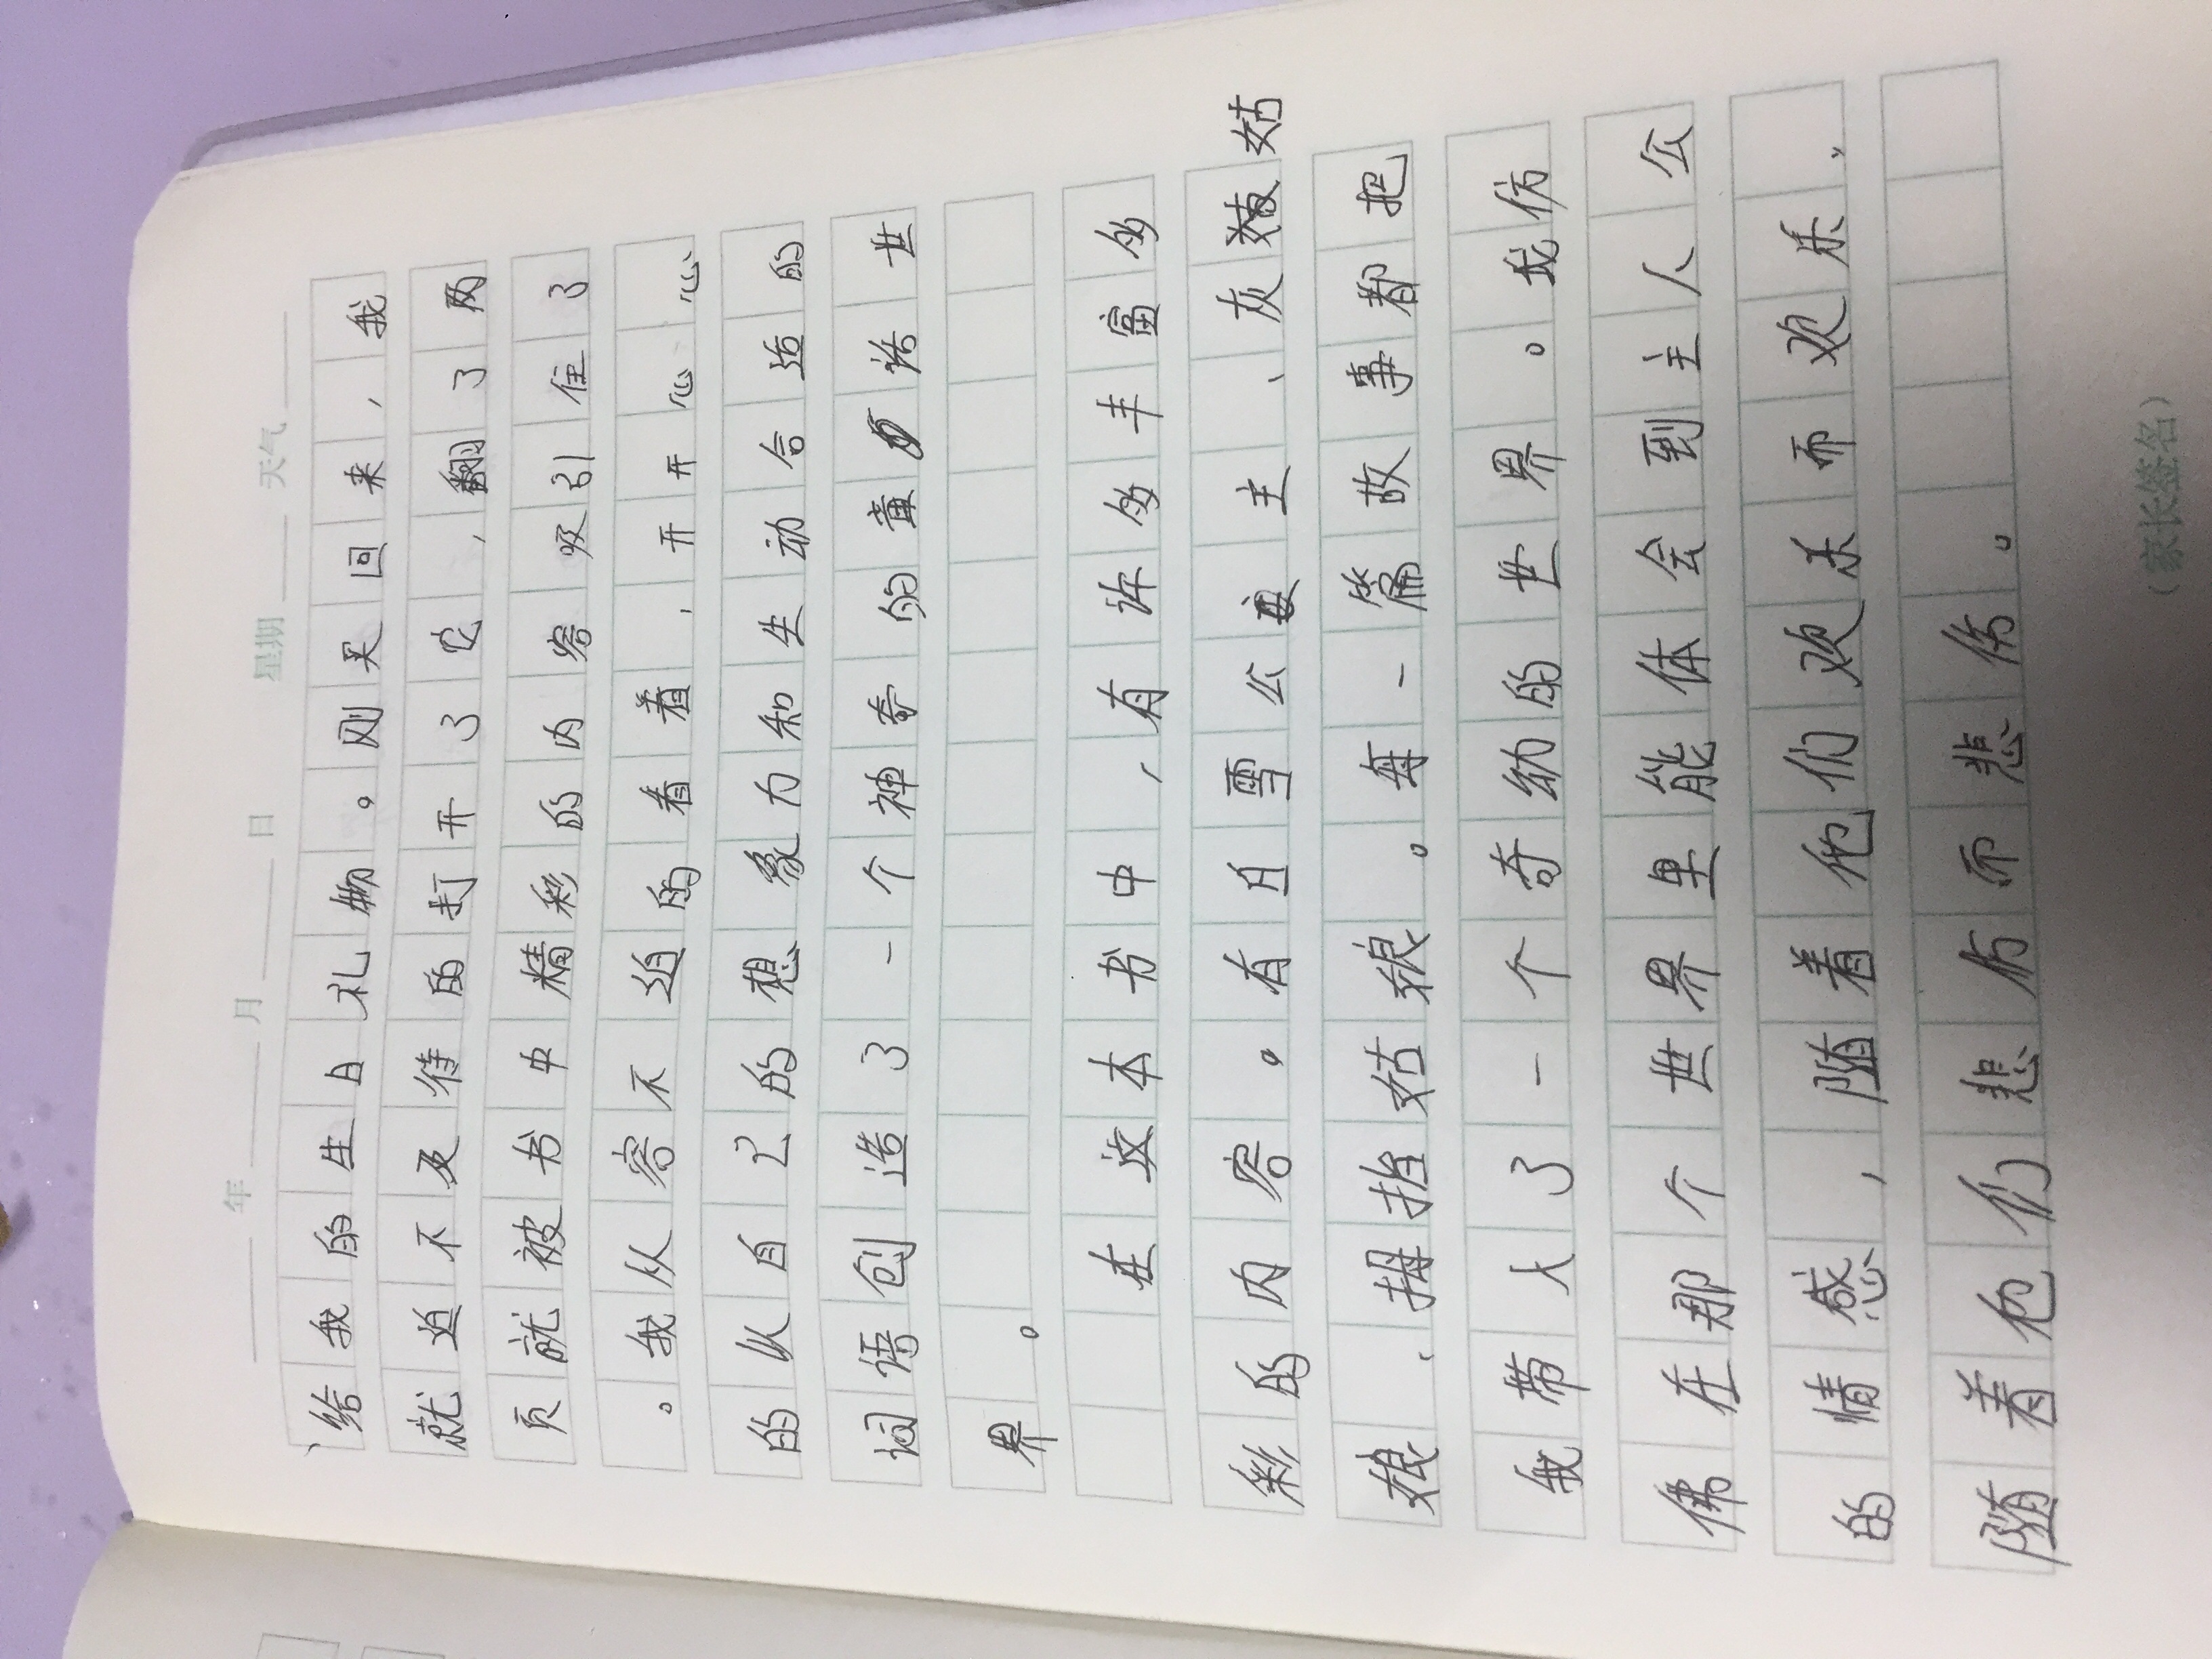 年 月 日 星期 天气
给我的生日礼物。刚买回来,我
就迫不及待的打开了它,翻了两
页就被书中精彩的内容吸引住了
。我从容不迫的看着,开开心心
的从自己的想象力和生动合适的
词语创造了一个神奇的童话世
界。
在这本书中,有许多丰富多
彩的内容。有白雪公主、灰姑
娘、拇指姑娘。每一篇故事都把
我带入了一个奇幼的世界。我仿
佛在那个世界里能体会到主人公
的情感,随着他们欢乐而欢乐、
随着他们悲伤而悲伤。
(家长签名)